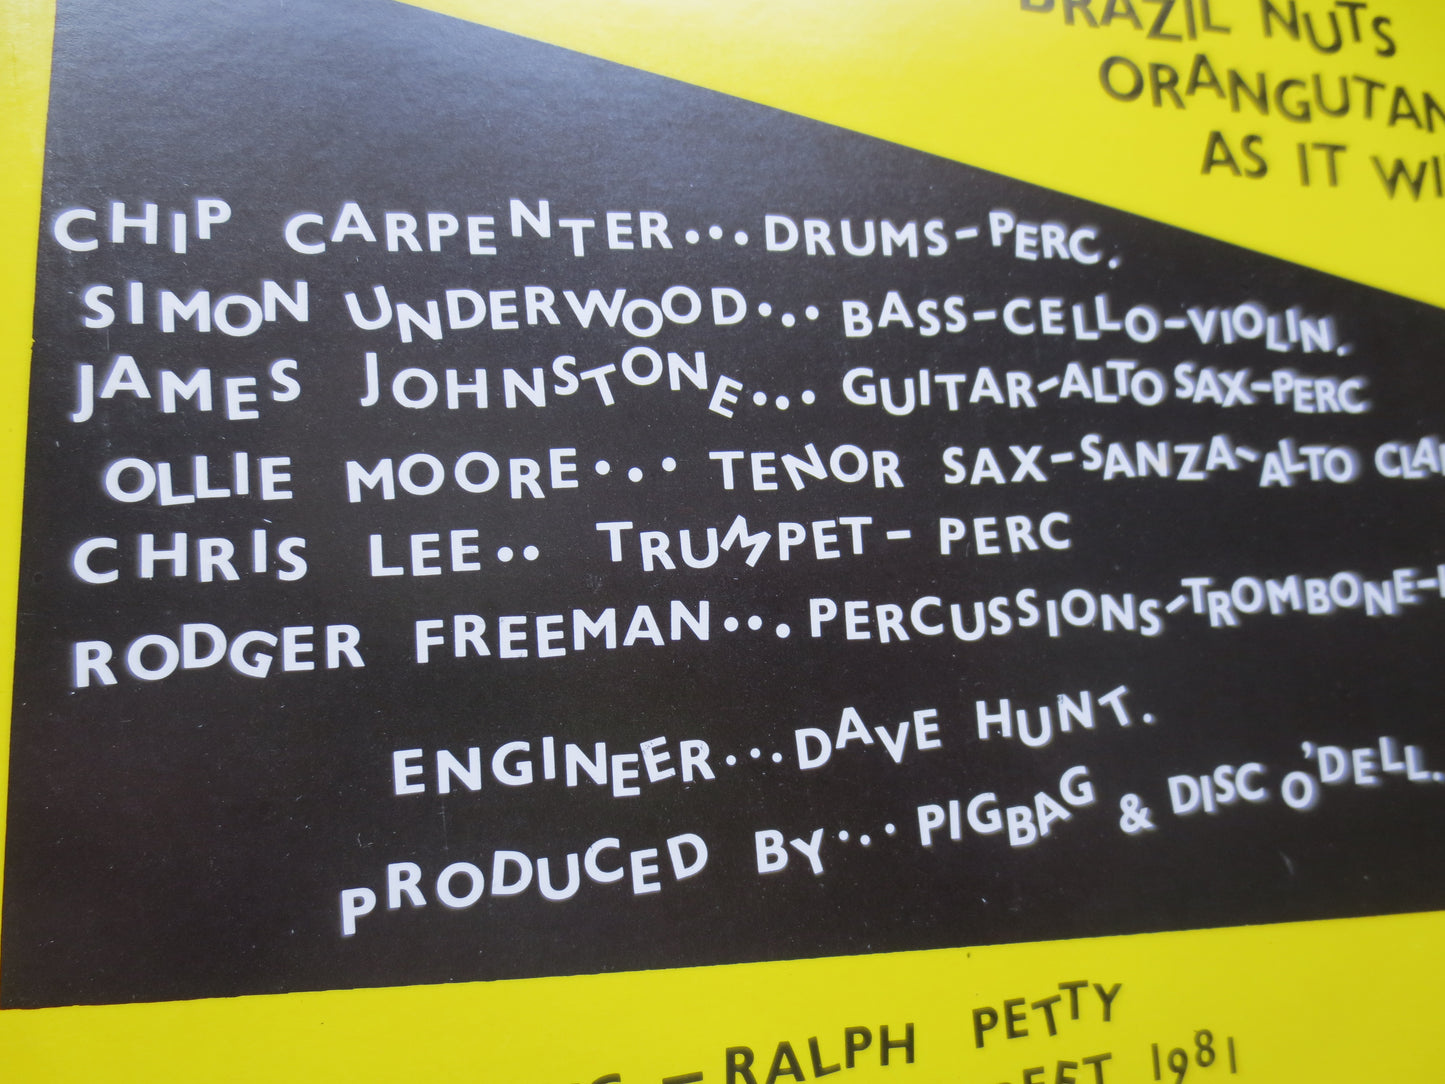 BRAZIL NUTS
ORANGUTAN
AS IT
CHIP CARPENTER...DRUMS-PERC.
SIMON UNDERWOOD... BASS-CELLO-VIOLIN.
JAMES JOHNSTONE... GUITAR-ALTO SAX-PERC
OLLIE MOORE... TENOR SAX-SANZA-ALTO
CHRIS LEE.. TRUMPET- PERC
RODGER FREEMAN... PERCUSSIONS-TROMBONE-
ENGINEER...DAVE HUNT.
PRODUCED BY... PIGBAG & DISC O'DELL.
-RALPH PETTY
1981